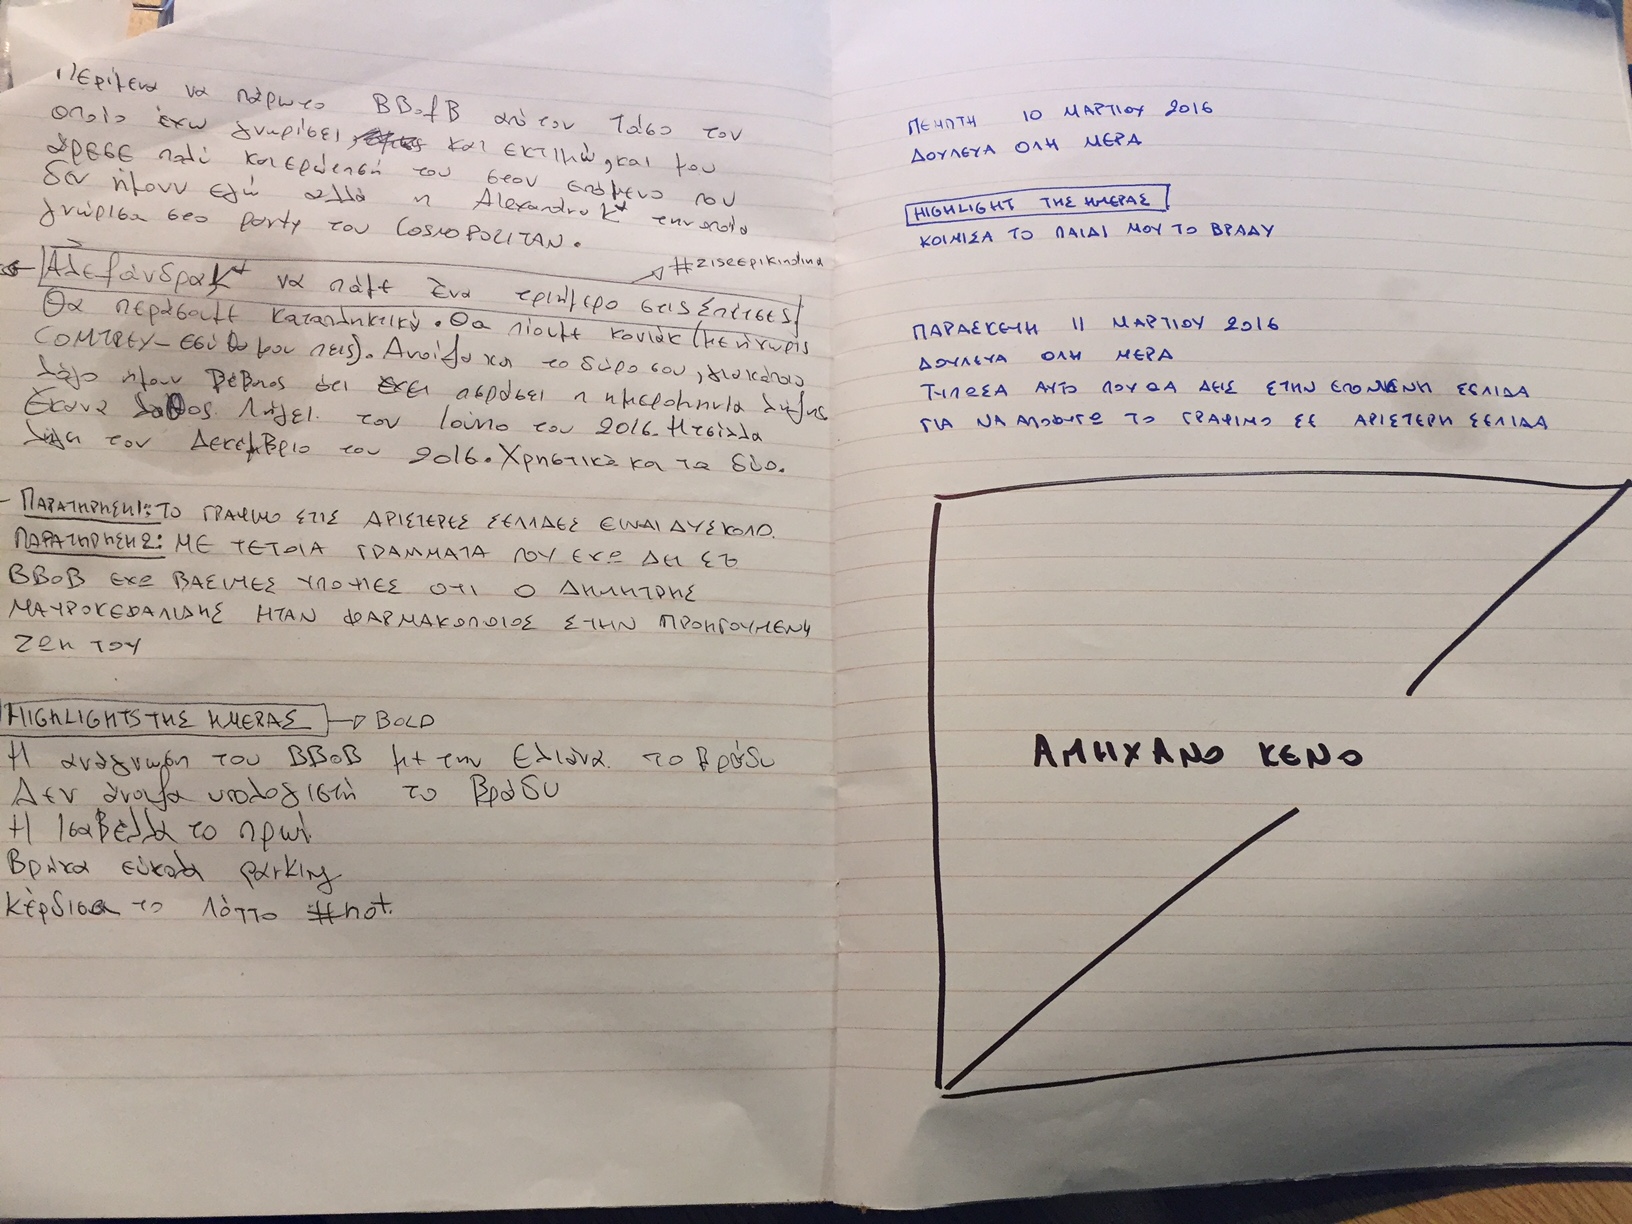 Περίμενα να πάρω το BBofB από τον Τάσο τον
οποίο έχω γνωρίσει, και εκτιμώ, και μου
άρεσε πολύ και ερώτησή του στον επόμενο που
δεν ήμουν εγώ αλλά η Alexandra K+ την οποία
γνώρισα στο party του COSMOPOLITAN.
#ziseepikindina
Αλεξάνδρα K+ να πάμε ένα τριήμερο στις Σπέτσες!
Θα περάσουμε καταπληκτικά. Θα πιούμε κονιάκ (με ή χωρίς
COMTREY - εσύ θα μου πεις). Ανοίξα και το δώρο σου, για κάποιο
λόγο ήμουν βέβαιος ότι έχει περάσει η ημερομηνία λήξης
Έκανα λάθος. Λήγει τον Ιούνιο του 2016. Η τσίχλα
λήγει τον Δεκέμβριο του 2016. Χρηστικά και τα δύο.
- ΠΑΡΑΤΗΡΗΣΗ1: ΤΟ ΓΡΑΨΙΜΟ ΣΤΙΣ ΑΡΙΣΤΕΡΕΣ ΣΕΛΙΔΕΣ ΕΙΝΑΙ ΔΥΣΚΟΛΟ.
ΠΑΡΑΤΗΡΗΣΗ2: ΜΕ ΤΕΤΟΙΑ ΓΡΑΜΜΑΤΑ ΠΟΥ ΕΧΩ ΔΕΙ ΣΤΟ
BBoB ΕΧΩ ΒΑΣΙΜΕΣ ΥΠΟΨΙΕΣ ΟΤΙ Ο ΔΗΜΗΤΡΗΣ
ΜΑΥΡΟΚΕΦΑΛΙΔΗΣ ΗΤΑΝ ΦΑΡΜΑΚΟΠΟΙΟΣ ΣΤΗΝ ΠΡΟΗΓΟΥΜΕΝΗ
ΖΩΗ ΤΟΥ
HIGHLIGHTS ΤΗΣ ΗΜΕΡΑΣ → BOLD
Η ανάγνωση του BBoB με την Ελιάνα το βράδυ
Δεν άνοιξα υπολογιστή το βράδυ
Η Ισαβέλλα το πρωί
Βρήκα εύκολα parking
Κέρδισα το Λόττο #not.
ΠΕΜΠΤΗ 10 ΜΑΡΤΙΟΥ 2016
ΔΟΥΛΕΥΑ ΟΛΗ ΜΕΡΑ
HIGHLIGHT ΤΗΣ ΗΜΕΡΑΣ
ΚΟΙΜΙΣΑ ΤΟ ΠΑΙΔΙ ΜΟΥ ΤΟ ΒΡΑΔΥ
ΠΑΡΑΣΚΕΥΗ 11 ΜΑΡΤΙΟΥ 2016
ΔΟΥΛΕΥΑ ΟΛΗ ΜΕΡΑ
ΤΥΠΩΣΑ ΑΥΤΟ ΠΟΥ ΘΑ ΔΕΙΣ ΣΤΗΝ ΕΠΟΜΕΝΗ ΣΕΛΙΔΑ
ΓΙΑ ΝΑ ΑΠΟΦΥΓΩ ΤΟ ΓΡΑΨΙΜΟ ΣΕ ΑΡΙΣΤΕΡΗ ΣΕΛΙΔΑ
ΑΜΗΧΑΝΟ ΚΕΝΟ